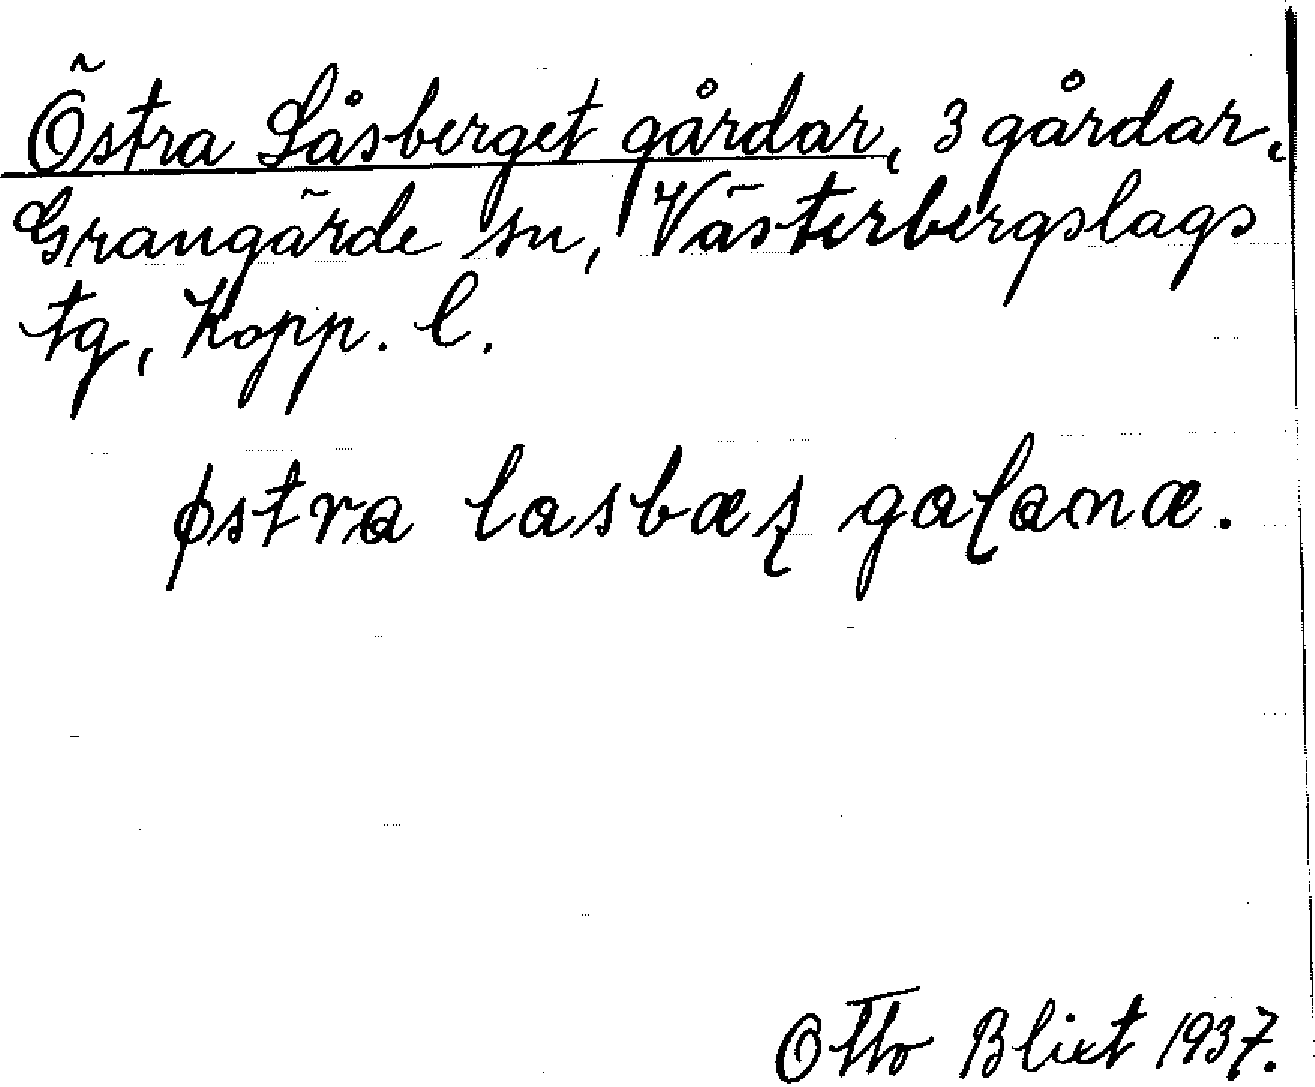 Östra Låsberget gårdar, 3 gårdar,
Grangärde sn, Västerbergslags
tg, Kopp. l.
østra lasbæʂ gaɭanæ.
Otto Blixt 1937.